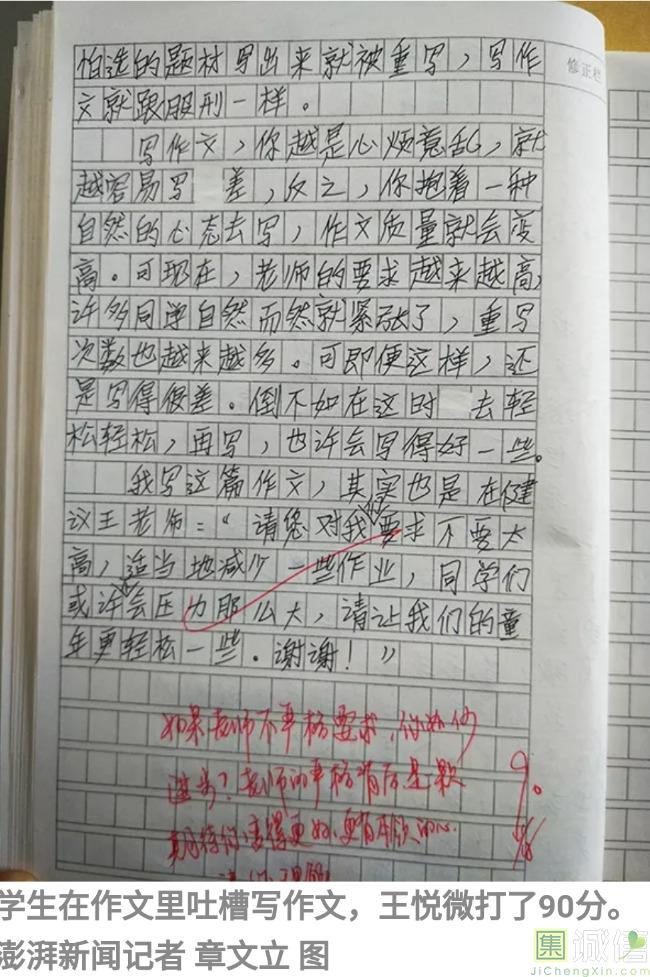 怕选的题材写出来就被重写，写作
文就跟服刑一样。
写作文，你越是心烦意乱，就
越容易写 差，反之，你抱着一种
自然的心态去写，作文质量就会变
高。可现在，老师的要求越来越高，
许多同学自然而然就紧张了，重写
次数也越来越多。可即便这样，还
是写得很差。倒不如在这时 去轻
松轻松，再写，也许会写得好一些。
我写这篇作文，其实也是在健
议王老师："请您对我们要求不要太
高，适当地减少一些作业，同学们
或许会压力那么大，请让我们的童
年更轻松一些。谢谢！"
如果老师不严格要求，你如何
进步？老师的严格背后是一颗
期待你变得更好、更有本领的心.
90
修正栏
学生在作文里吐槽写作文，王悦微打了90分。
澎湃新闻记者 章文立 图
集诚信
JiChengXin.com